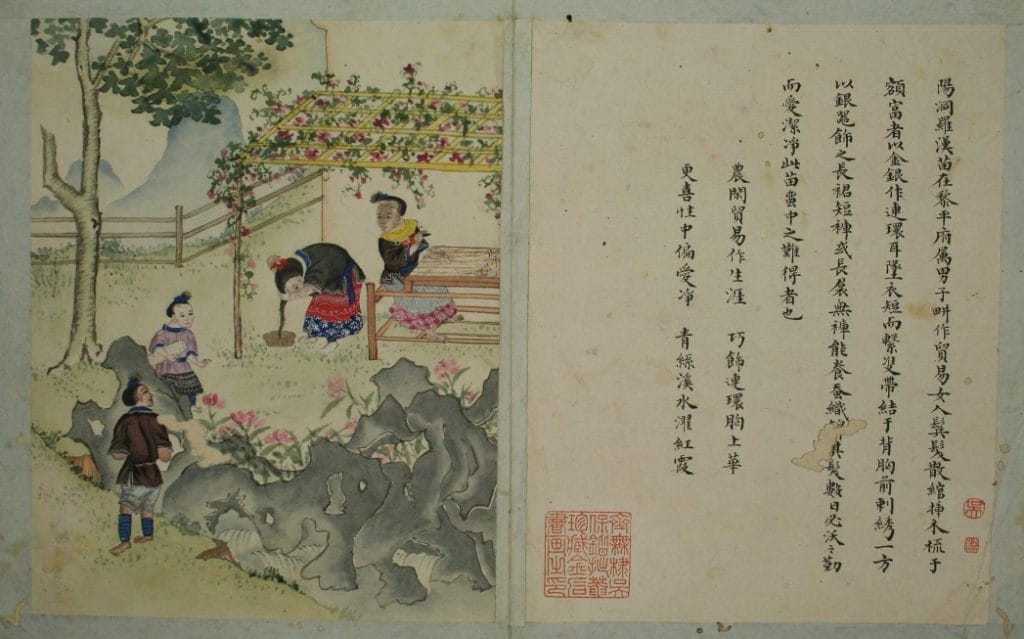 陽洞羅漢苗在黎平府属男子畊作貿易女人鬓髮散綰揷木梳于
額富者以金銀作連環耳墜衣短而繫雙帶結于背胸前刺綉一方
以銀器飾之長裙短褲或長裙無褲能養蚕織其髮數日必沃之勤
而愛潔凈此苗蛮中之難得者也
農閑貿易作生涯 巧飾連環胸上華
更喜性中偏愛凈 青絲溪水濯紅霞
吳
無棣吳
珍藏金石
書画之印